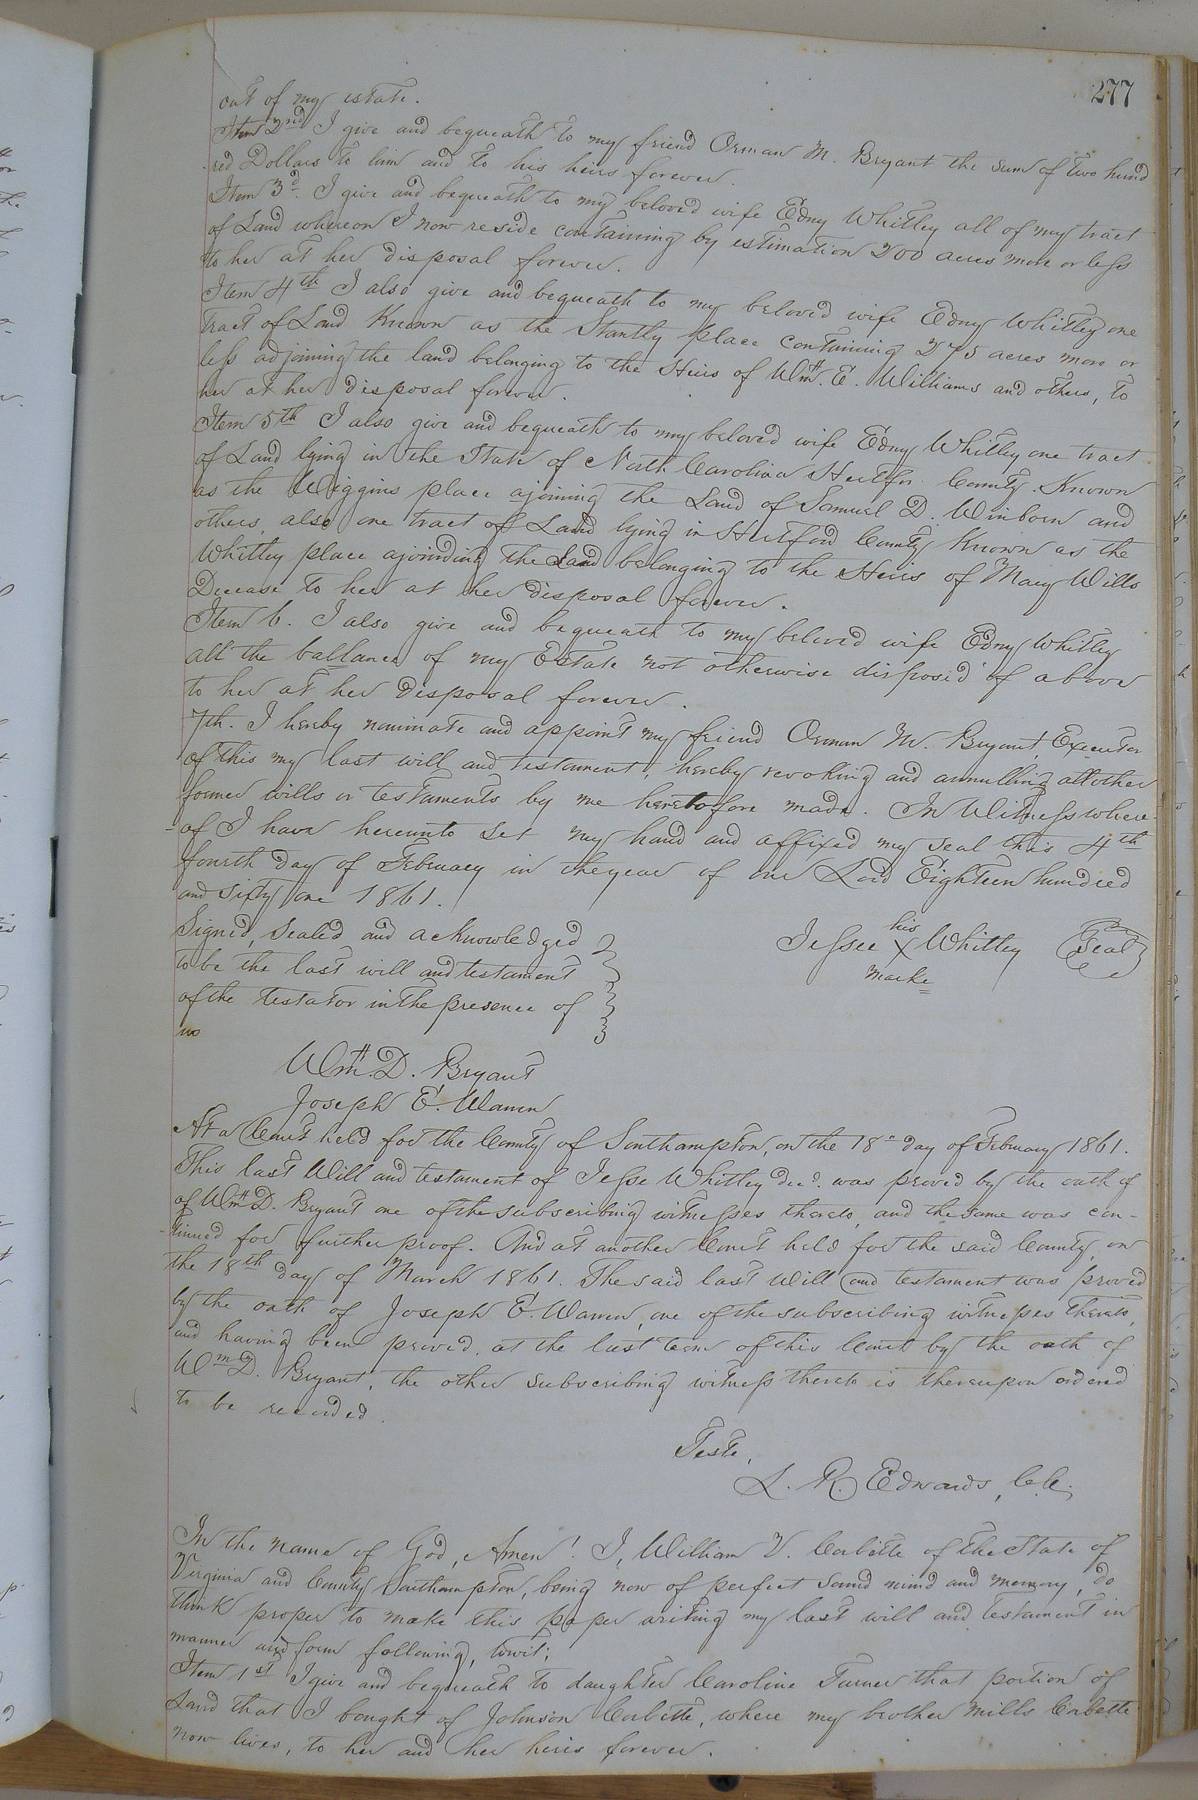 277
out of my estate.
Item 2nd I give and bequeath to my friend Orman M. Bryant the sum of two hund
red Dollars to him and to his heirs forever.
Item 3d. I give and bequeath to my beloved wife Edny Whitley all of my tract
of Land whereon I now reside containing by estimation 200 acres more or less
to her at her disposal forever.
Item 4th I also give and bequeath to my beloved wife Edny Whitley one
tract of Land Known as the Stantly place containing 275 acres more or
less adjoining the land belonging to the Heirs of Wm. E. Williams and others, to
her at her disposal forever.
Item 5th I also give and bequeath to my beloved wife Edny Whitley one tract
of Land lying in the State of North Carolina Hertfor County. Known
as the Wiggins place ajoining the Land of Samuel D. Winborn and
others, also one tract of Land lying in Hertford County Known as the
Whitley place ajoinding the Land belonging to the Heirs of Mary Wills
Decease to her at her disposal forever.
Item 6. I also give and bequeath to my beloved wife Edny Whitley
all the ballance of my Estate not otherwise disposed of above
to her at her disposal forever.
7th. I hereby nominate and appoint my friend Orman M. Bryant Executor
of this my last will and testament, hereby revoking and annulling all other
former wills or testaments by me heretofore made. In Witness where-
of I have hereunto set my hand and affixed my seal this 4th
fourth day of February in the year of our Lord Eighteen hundred
and sixty one 1861.
Signed, Sealed and acknowledged
to be the last will and testament
of the testator in the presence of
us
his
Jessee X Whitley Seal
marke
Wm. D. Bryant
Joseph E. Warren
At a Court held for the County of Southampton, on the 18th day of February 1861.
This last Will and testament of Jesse Whitley decd. was proved by the oath of
of Wm D. Bryant one of the subscribing witnesses thereto, and the same was con-
tinued for further proof. And at another Court held for the said County on
the 18th day of March 1861. The said last Will and testament was proved
by the oath of Joseph E. Warren, one of the subscribing witnesses thereto,
and having been proved at the last term of this Court by the oath of
Wm D. Bryant, the other subscribing witness thereto is thereupon ordered
to be recorded.
Teste,
L. R. Edwards, C.C.
In the name of God, Amen! I, William V. Corbitte of the State of
Virginia and County Southampton, being now of perfect sound mind and memory, do
think proper to make this paper writing my last will and testament in
manner and form following, towit;
Item 1st I give and bequeath to daughter Caroline Turner that portion of
Land that I bought of Johnson Corbitte, where my brother Mills Corbette
now lives, to her and her heirs forever.